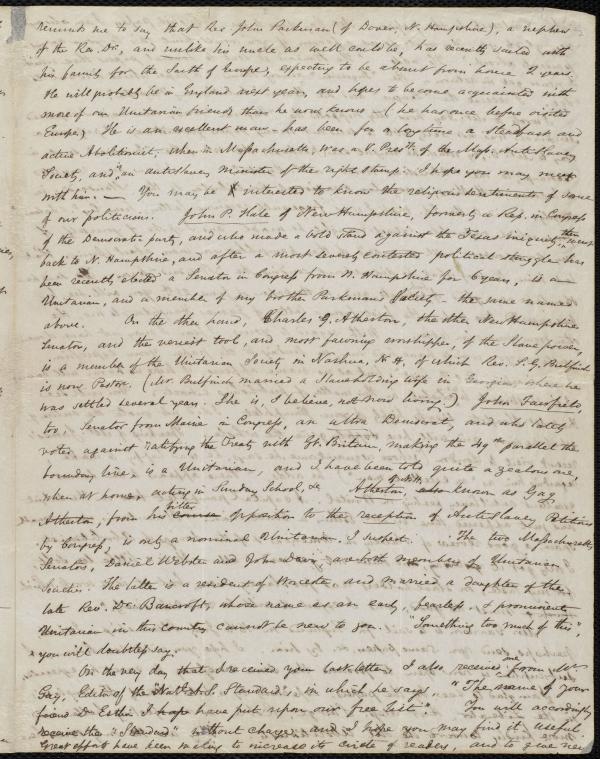 reminds me to say that Rev. John Parkman (of Dover, N. Hampshire), a nephew
of the Rev. Dr., and unlike his uncle as well could be, has recently sailed with
his family for the South of Europe, expecting to be absent from home 2 years.
He will probably be in England next year, and hopes to become acquainted with
more of our Unitarian friends than he now knows – (he has once before visited
Europe.) He is an excellent man – has been for a long time a steadfast and
active Abolitionist, when in Massachusetts, was a V. Prest. of the Mass. Anti Slavery
Society, and "an antislavery minister of the right stamp." I hope you may meet
with him. — You may be interested to know the religious sentiments of some
of our politicians. John P. Hale of New Hampshire, formerly a Rep. in Congress
of the Democratic party, and who made a bold stand against the Texas iniquity, then went
back to N. Hampshire, and after a most severely contested political struggle has
been recently elected a Senator in Congress from N. Hampshire for 6 years, is a
Unitarian, and a member of my brother Parkman's Society – the same named
above. On the other hand, Charles G. Atherton, the other New Hampshire
Senator, and the veriest tool, and most fawning worshipper, of the Slave power,
is a member of the Unitarian Society in Nashua, N. H, of which Rev. S. G. Bulfinch
is now Pastor. (Mr. Bulfinch married a Slaveholding wife in Georgia, where he
was settled several years. She is, I believe, not now living.) John Fairfield,
too, Senator from Maine in Congress, an ultra Democrat, and who lately
voted against ratifying the Treaty with Gt. Britain, making the 49th parallel the
boundary line, is a Unitarian, and I have been told quite a zealous one,
when at home, acting in Sunday School, &c Atherton, also known as Gag
Atherton, from his bitter opposition to the reception of Anti Slavery Petitions
by Congress, is only a nominal Unitarian, I suspect. The two Massachusetts
Senators, Daniel Webster and John Davis, are both members of Unitarian
Societies. The latter is a resident of Worcester, and married a daughter of the
late Rev. Dr. Bancroft, whose name as an early, fearless, & prominent
Unitarian in this country cannot be new to you. "Something too much of this",
you will doubtless say.
On the very day that I received your last letter, I also received one from Mr.
Gay, Editor of the Natl. A. S. Standard, in which he says "The name of your
friend Dr Estlin I have put upon our free list". You will accordingly
receive the "Standard" without charge, and I hope you may find it useful.
Great efforts have been making to increase its circle of readers, and to give new